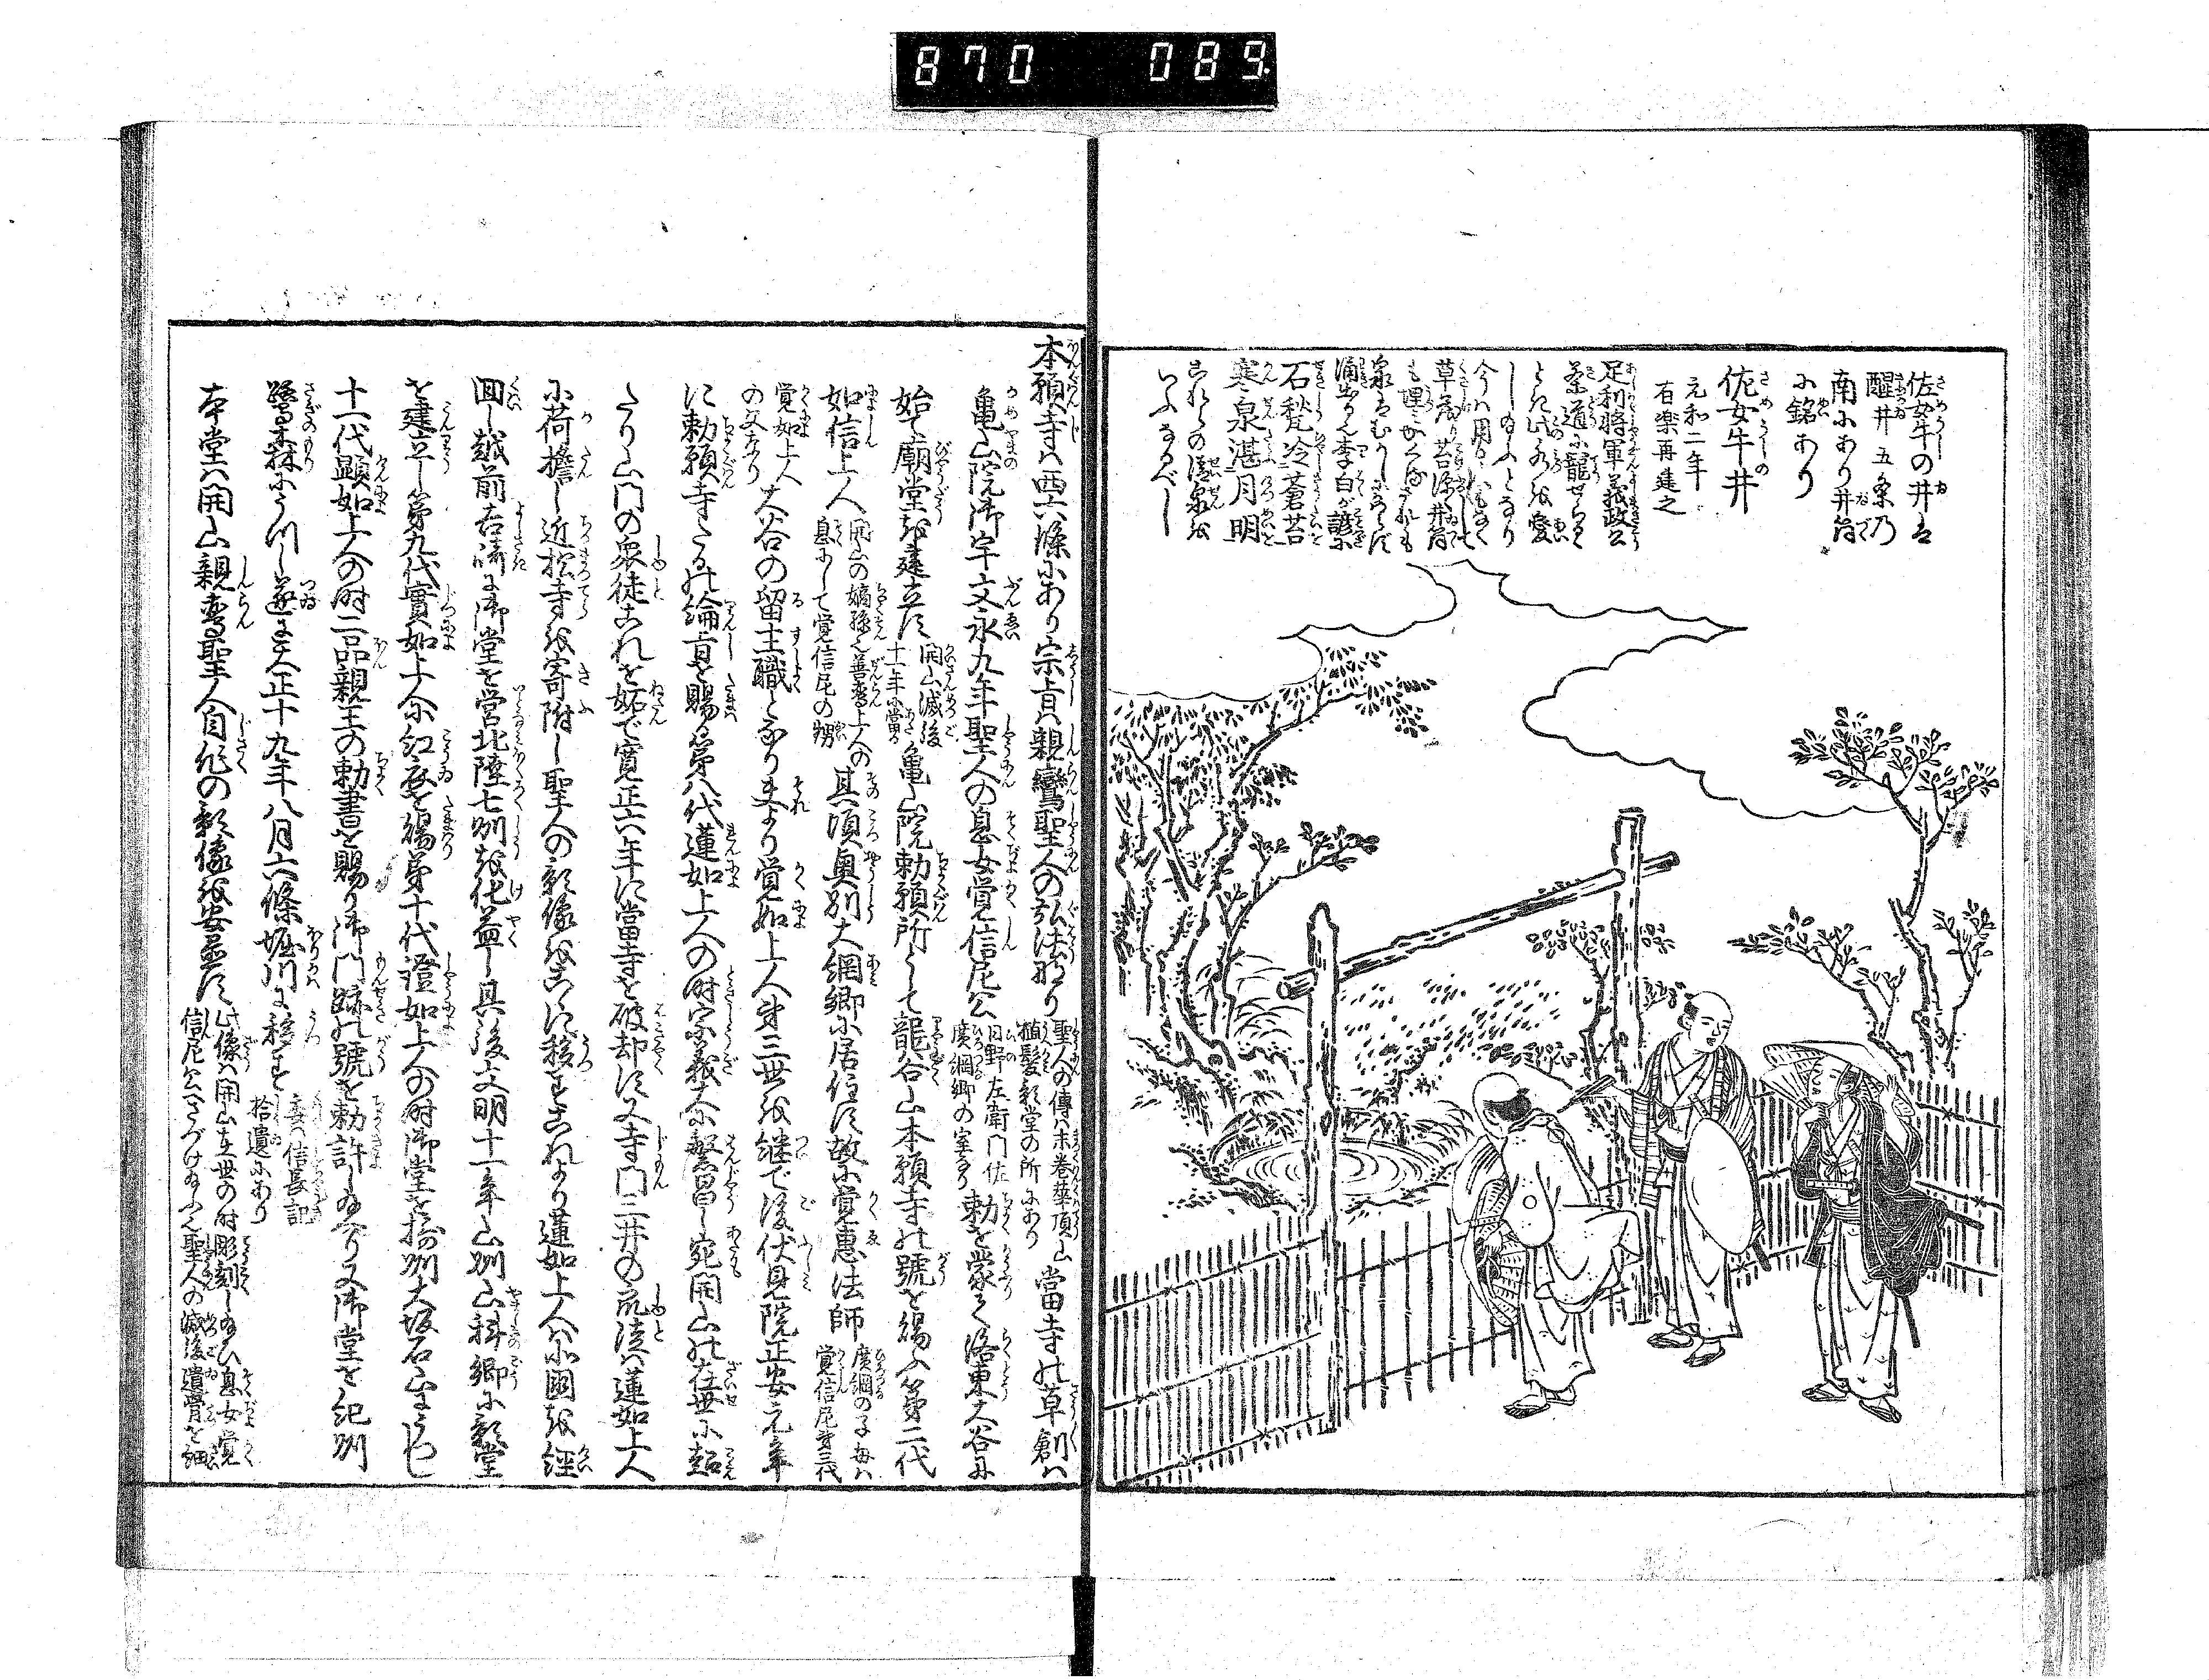 870 089
佐女牛の井は
醒井五条乃
南にあり井筒
に銘あり
佐女牛井
元和二年
有楽再建之
足利将軍義政公
茶道に寵せられ
とき此水を愛
し給ふとなり
今は用る人もなくして
草茂り苔深く井筒
も埋みかくるされども
泉はむかしにかはらず
涌出るさま李白が諺に
石甃冷蒼苔
寒泉湛月明
これらの清泉を
いふなるべし
本願寺は西六條にあり宗旨は親鸞聖人の弘法なり聖人の傳は末巻華頂山植髪影堂の所にあり當寺の草創は
亀山院御宇文永九年聖人の息女覚信尼公日野左衛門佐廣綱郷の室なり勅を蒙て洛東大谷に
始て廟堂を建立す開山滅後十一年に當る亀山院勅願所として龍谷山本願寺の號を賜ふ第二代
如信上人開山の嫡孫善鸞上人の息にして覚信尼の甥其頃奥州大網郷に居住す故に覚恵法師廣綱の子母は覚信尼第三代
覚如上人の父なり大谷の留主職となり夫より覚如上人第三世を継で後伏見院正安元年
に勅願寺たるの綸旨を賜ふ第八代蓮如上人の時宗義大に繁昌し宛開山の在世に超
たり山門の衆徒これを妬で寛正六年に當寺を破却す又寺門三井の衆徒は蓮如上人
に荷擔し近松寺を寄附し聖人の影像をこゝに移すこれより蓮如上人は小國を經
回し越前吉崎に御堂を営北陸七州を化益し其後文明十一年山州山科郷に影堂
を建立し第九代實如上人に紅衣を賜第十代證如上人の時御堂を摂州大坂石山にうつし
十一代顕如上人の時二品親王の勅書を賜り御門跡の號を勅許し給へり又御堂を紀州
鷺森にうつし遂に天正十九年八月六條堀川に移す委は信長記拾遺にあり
本堂は開山親鸞聖人自作の影像を安置す此像は開山在世の時彫刻し給ひ息女覚信尼公へさづけ給ふ聖人の滅後遺骨を細